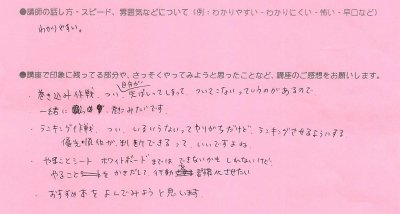 ●講師の話し方・スピード、雰囲気などについて（例：わかりやすい・わかりにくい・怖い・早口など）
わかりやすい。
●講座で印象に残ってる部分や、さっそくやってみようと思ったことなど、講座のご感想をお願いします。
・巻き込み作戦、つい自分が突ぱしってしまって、ついてこないっていうのがあるので
一緒に 試みたいです。
・ランキング作戦、つい、いるいらないってやりがちだけど、ランキングさせるようにする
優先順位が判断できるって、いいですよね。
・やることシート ホワイトボードまではできないかもしれないけど、
やることをかきだして、行動 習慣化させたい
・おすすめ本をよんでみようと思います。